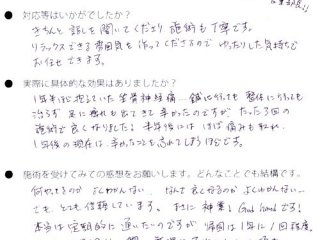 ● 対応等はいかがでしたか?
きちんと話しを聞いてくださり 施術も丁寧です。
リラックスできる雰囲気を作ってくださるので ゆったりした気持ちで
お任せできます。
● 実際に具体的な効果はありましたか?
1年半ほど抱えていた坐骨神経痛…鍼に行っても整体に行っても
治らず 足に痺れも出てきて辛かったのですが たった3回の
施術で良くなりました。半年後には ほぼ痛みも取れ、
1年後の現在は、辛かったことも忘れてしまうほどです。
● 施術を受けてみての感想をお願いします。どんなことでも結構です。
何がやるのか よくわからない、 なんで良くなるのか よくわからない…
でも、とても信頼しています。まさに神業! God handです!
本当は定期的に通いたいのですが 帰国は1年に1回程度